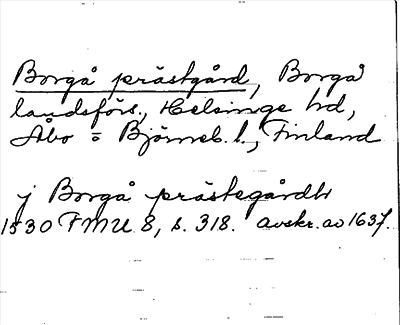 Borgå prästgård, Borgå
landsförs., Helsinge hd,
Åbo o Björneb. l., Finland
j Borgå prästegårdh
1530 FMU 8, s. 318. avskr. av 1637.